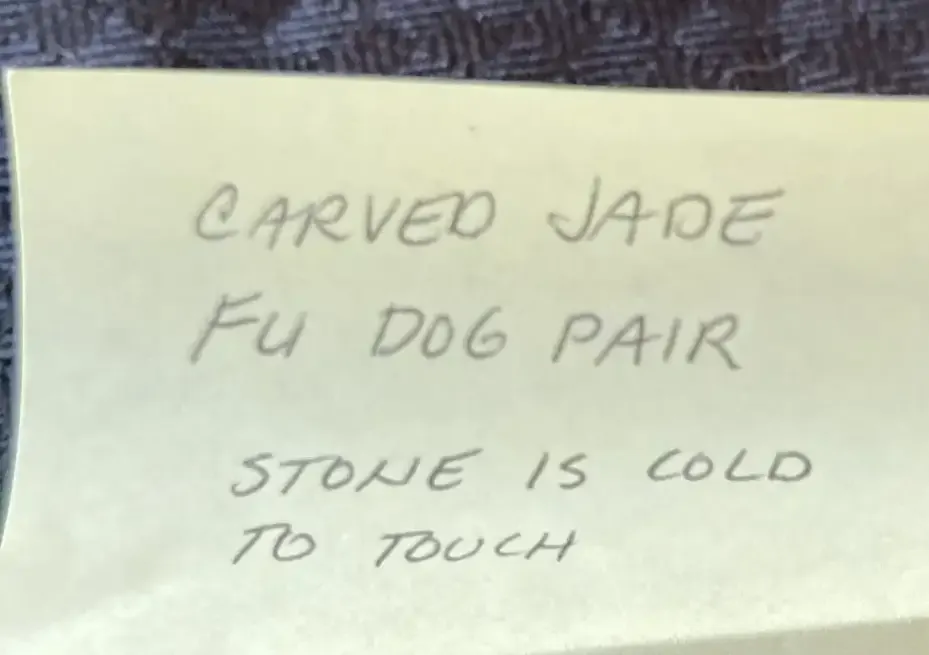 CARVED JADE
FU DOG PAIR
STONE IS COLD
TO TOUCH